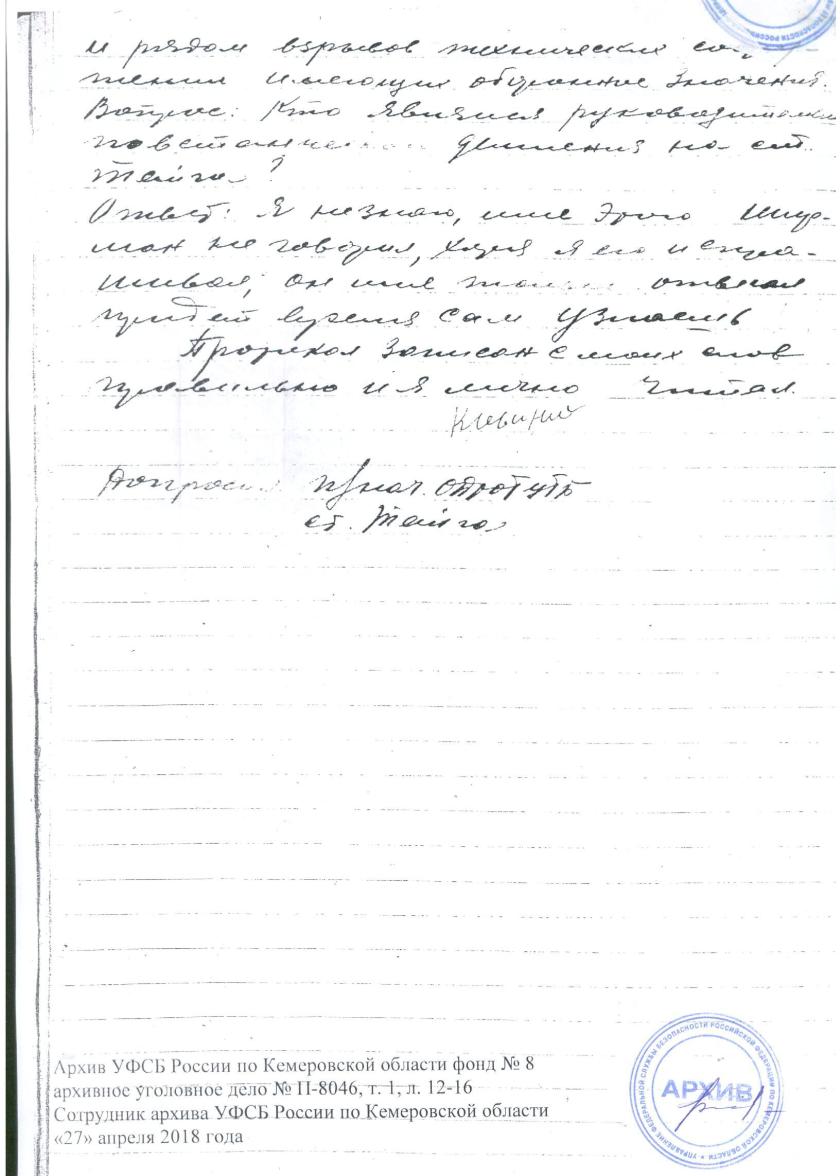 и рядом взрывов технических
жений имеющих оборонное значения.
Вопрос: Кто являлся руководителем
движения на ст.
Тайга?
Ответ: Я не знаю, мне этого Шир-
ман не говорил, хотя я его и спра-
шивал, он мне отвечал
придет время сам узнаешь
Протокол записан с моих слов
правильно и я лично читал.
Допросил: нач. ОДТО ГУГБ
ст. Тайга
Архив УФСБ России по Кемеровской области фонд № 8
архивное уголовное дело № П-8046, т. 1, л. 12-16
Сотрудник архива УФСБ России по Кемеровской области
«27» апреля 2018 года
УПРАВЛЕНИЕ ФЕДЕРАЛЬНОЙ СЛУЖБЫ БЕЗОПАСНОСТИ РОССИЙСКОЙ ФЕДЕРАЦИИ ПО КЕМЕРОВСКОЙ ОБЛАСТИ
АРХИВ